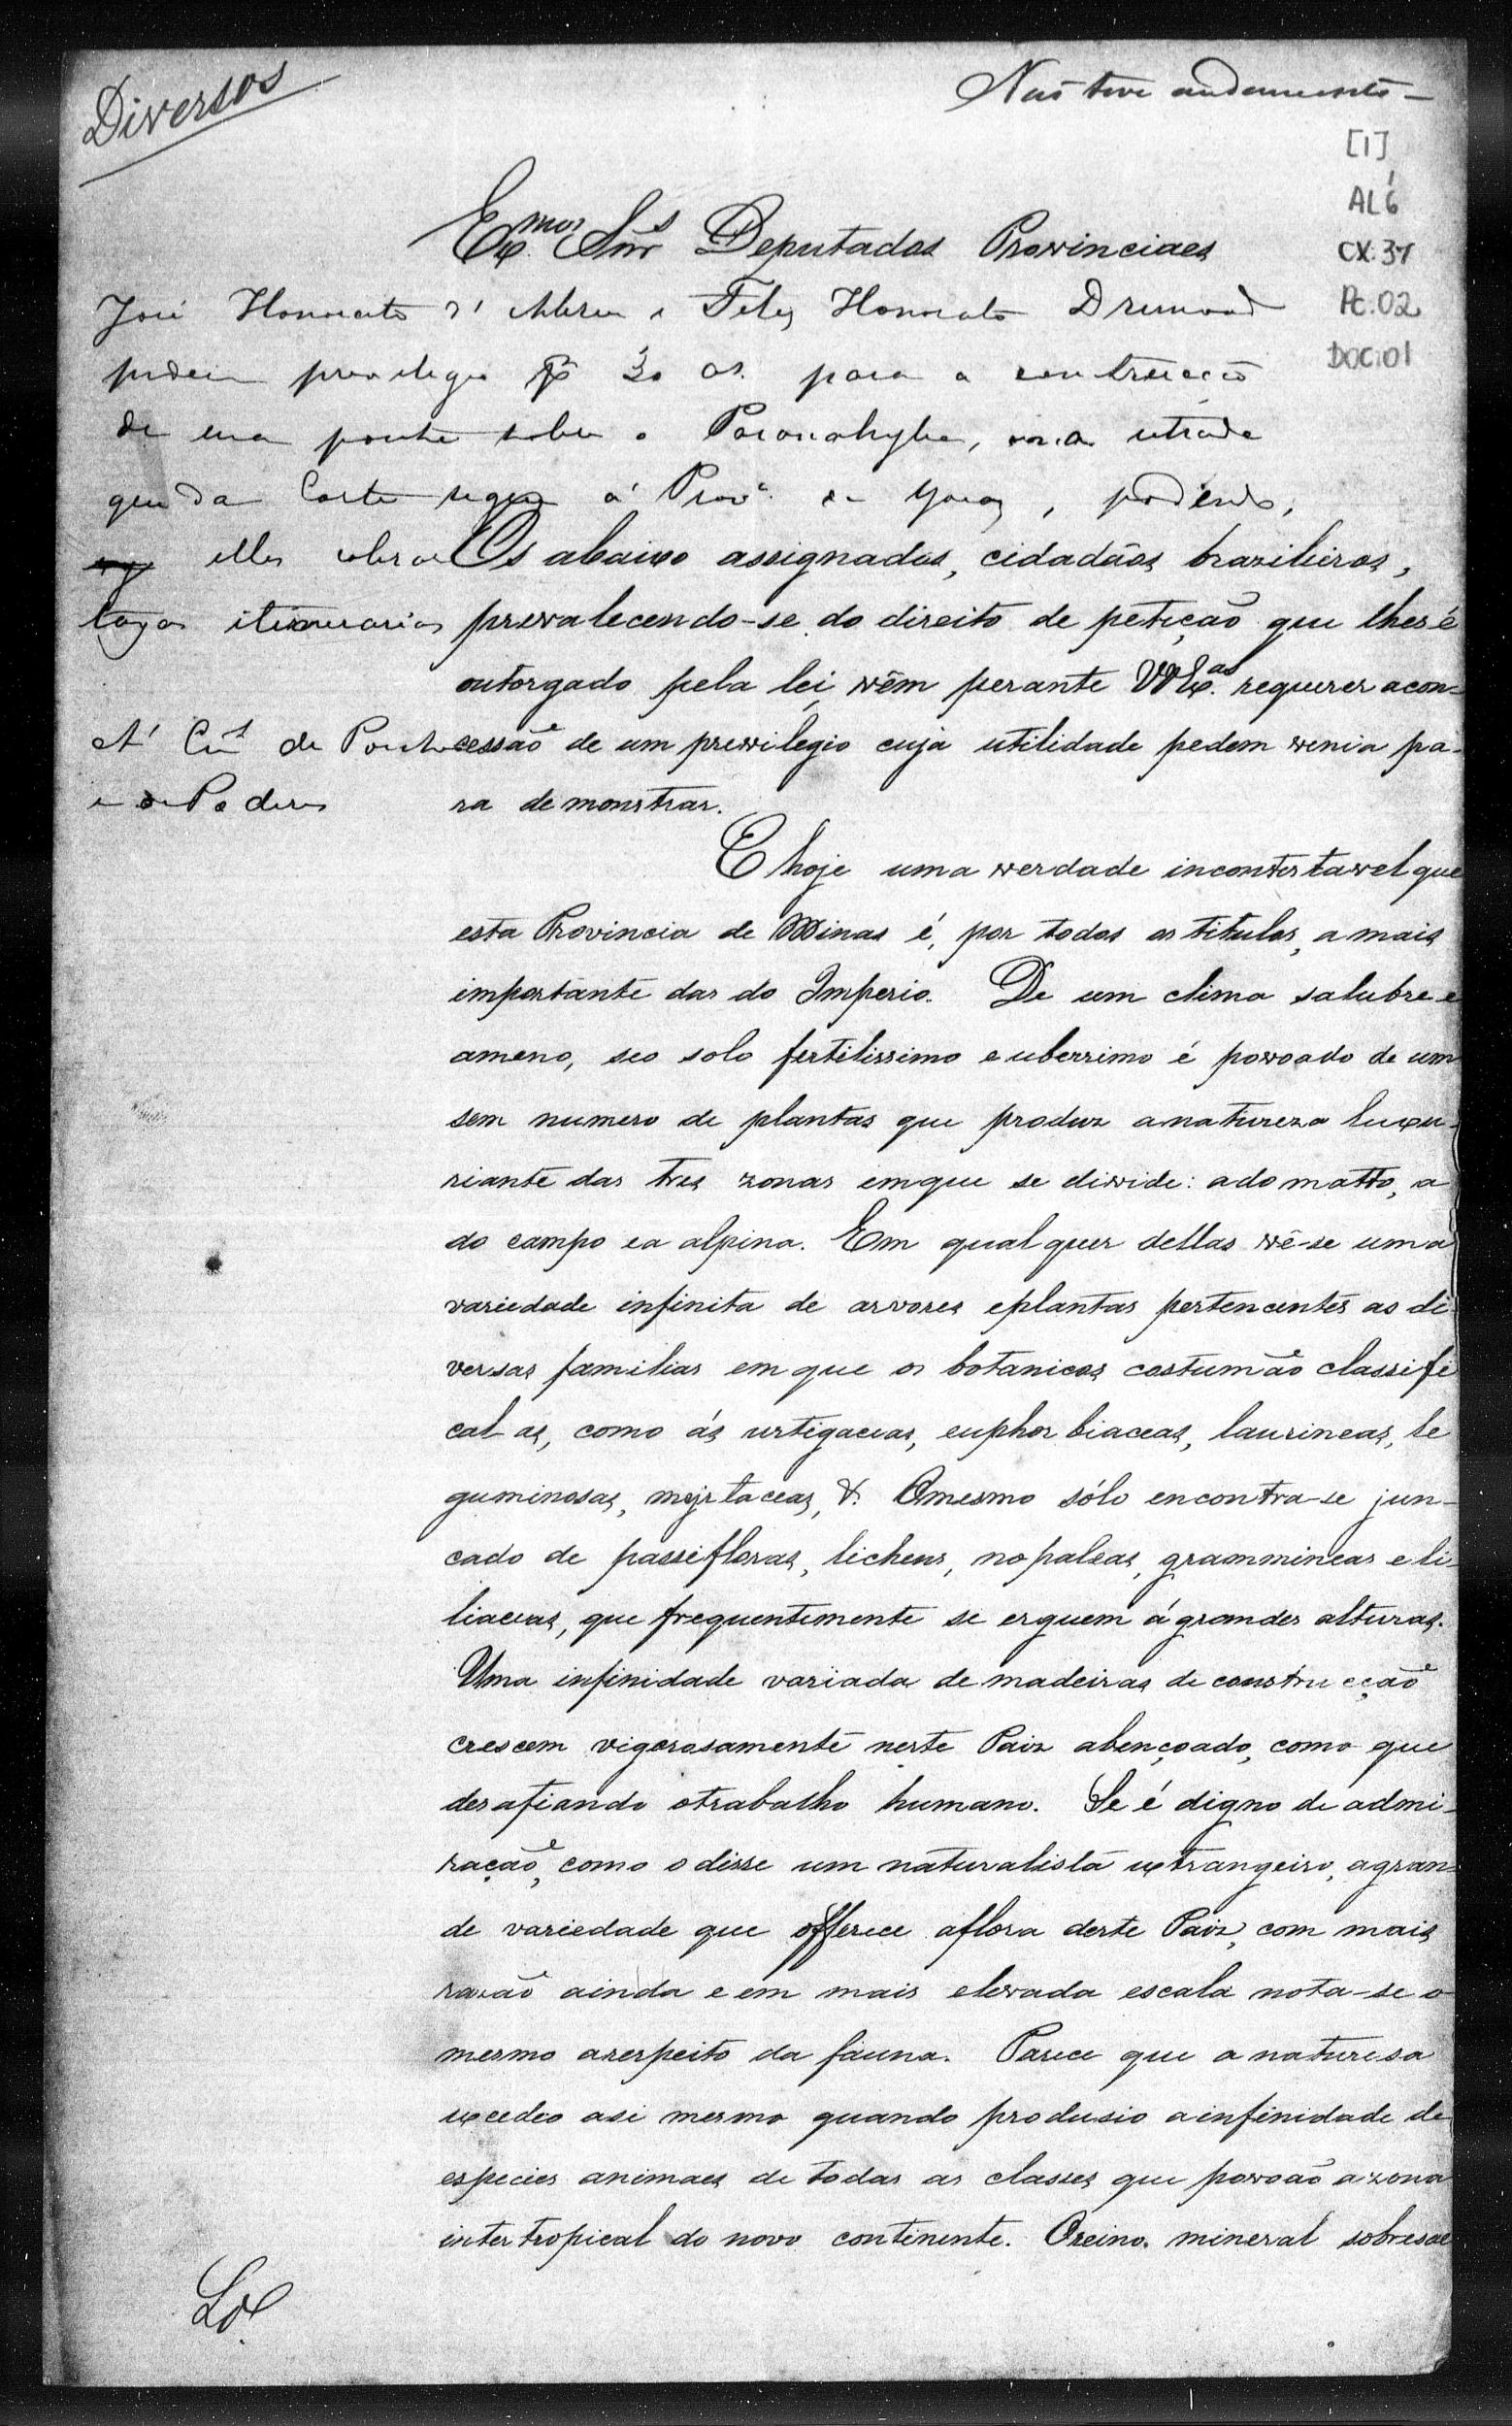 Diversos
Não teve andamento –
[1]
AL 6
CX: 37
PC. 02
DOC: 01
Exmos Snrs Deputados Provinciaes
José Honorato d'Abreu e Honorato Drumond
pedem privilegio por 30 as. para a construcção
de uma ponte sobre o Paranahyba, na estrada
que da Corte segue á Prova. de Goyaz, podendo,
elles cobrar
taxas itinerarias
A' Com. de Pontes
e de Poderes
Os abaixo assignados, cidadãos brazileiros,
prevalecendo-se do direito de petição que lhes é
outorgado pela lei, vêm perante VVExas. requerer a con-
cessão de um previlegio cuja utilidade pedem venia pa-
ra demonstrar.
E hoje uma verdade incontestavel que
esta Provincia de Minas é, por todos os titulos, a mais
importante das do Imperio. De um clima salubre e
ameno, seo solo fertilissimo e uberrimo é povoado de um
sem numero de plantas que produz a natureza luxu-
riante das tres zonas em que se divide: a do matto, a
do campo e a alpina. Em qualquer dellas vê-se uma
variedade infinita de arvores e plantas pertencentes as di-
versas familias em que os botanicos costumão classifi
cal-as, como ás urtigaceas, euphorbiaceas, laurineas, le
guminosas, myrtaceas, &. O mesmo sólo encontra-se jun-
cado de passifloras, lichens, nopaleas, grammineas e li-
liaceas, que frequentemente se erguem á grandes alturas.
Uma infinidade variada de madeiras de construcção
crescem vigorosamente neste Paiz abençoado, como que
desafiando o trabalho humano. Se é digno de admi-
ração, como o disse um naturalista extrangeiro, a gran-
de variedade que offerece a flora deste Paiz, com mais
razão ainda e em mais elevada escala nota-se o
mesmo a respeito da fauna. Parece que a naturesa
excedeo a si mesmo quando produsio a infinidade de
especies animaes de todas as classes que povoão a zona
intertropical do novo continente. O reino mineral sobresae